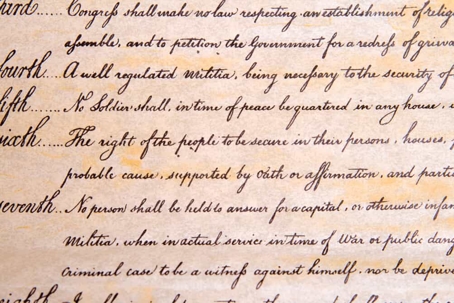 hird...... Congress shall make no law respecting an establishment of relig
assemble, and to petition the Government for a redress of grieva
ourth... A well regulated Militia, being necessary to the security of
ifth....... No Soldier shall, in time of peace be quartered in any house,
ixth..... The right of the people to be secure in their persons, houses,
probable cause, supported by Oath or affirmation, and parti
eventh.. No person shall be held to answer for a capital, or otherwise infam
Militia, when in actual service in time of War or public dang
criminal case to be a witness against himself, nor be deprive